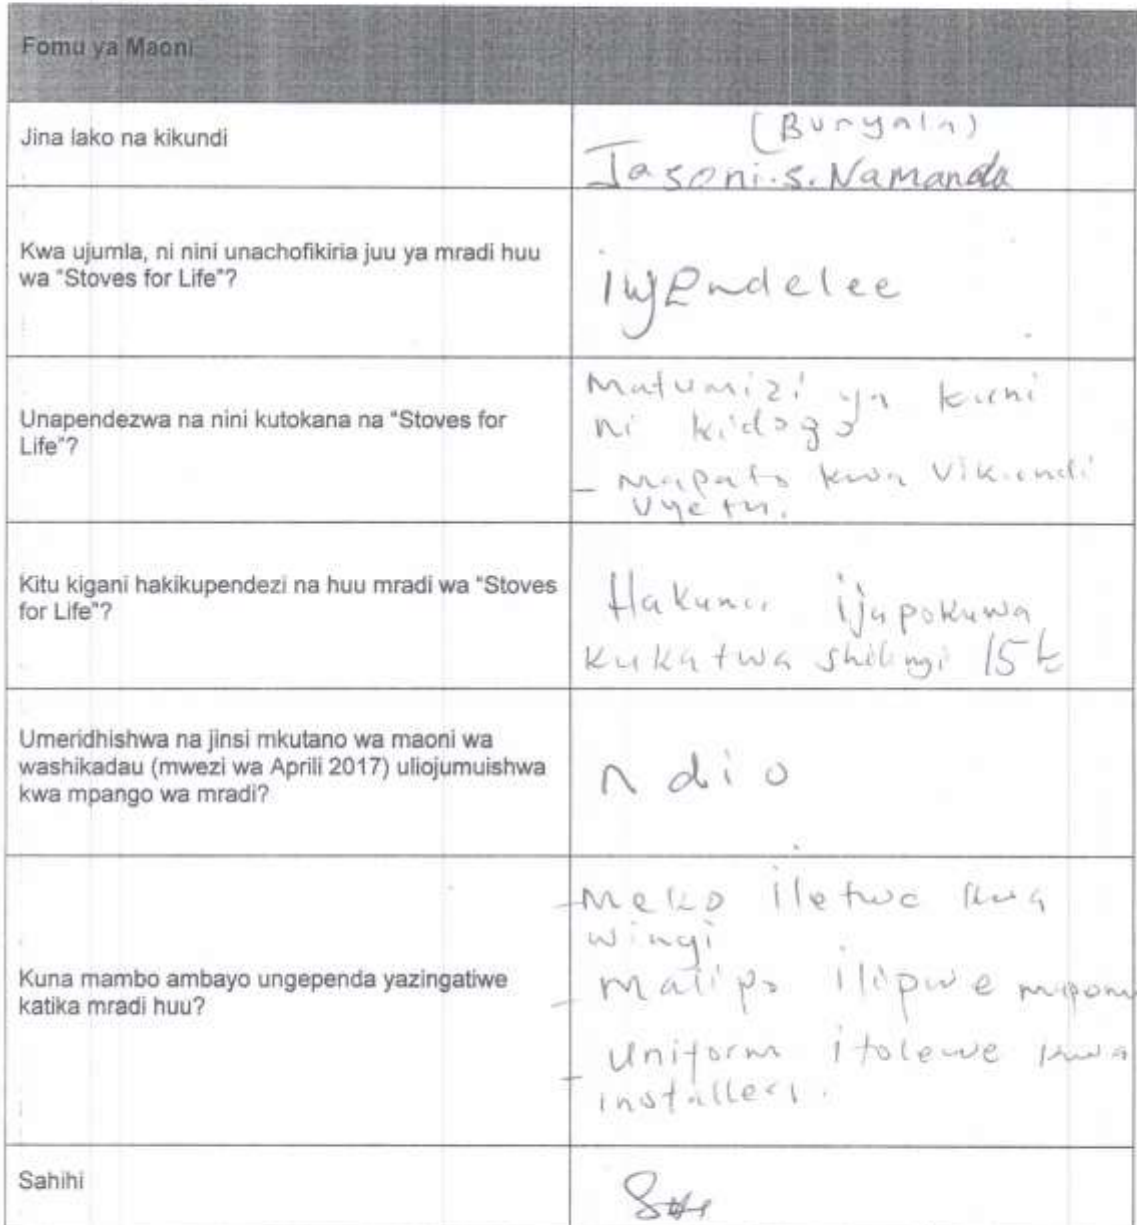 Fomu ya Maoni
Jina lako na kikundi
(Bunyala)
Jasoni.s.Namanda
Kwa ujumla, ni nini unachofikiria juu ya mradi huu
wa “Stoves for Life”?
iyendelee
Unapendezwa na nini kutokana na “Stoves for
Life”?
Matumizi ya kuni
ni kidogo
- Mapato kwa vikundi
vyetu.
Kitu kigani hakikupendezi na huu mradi wa “Stoves
for Life”?
Hakuna ijapokuwa
kukatwa shilingi
Umeridhishwa na jinsi mkutano wa maoni wa
washikadau (mwezi wa Aprili 2017) uliojumuishwa
kwa mpango wa mradi?
ndio
Kuna mambo ambayo ungependa yazingatiwe
katika mradi huu?
- Meko iletwe kwa
wingi
- Malipo ilipwe
- Uniform itolewe kwa
installers.
Sahihi